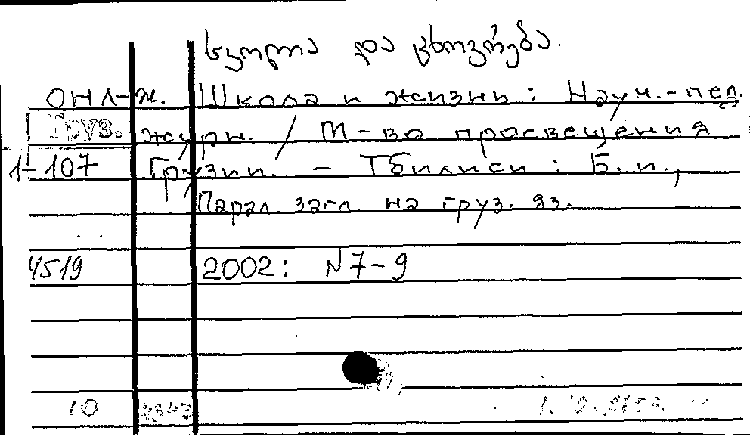 სკოლა და ცხოვრება.
ОНЛ-ж. Школа и жизнь: Науч.-пед.
Груз. журн. / М-во просвещения
1-107 Грузии. - Тбилиси: Б.и.,
Парал. загл. на груз. яз.
4519 2002: N7-9
10